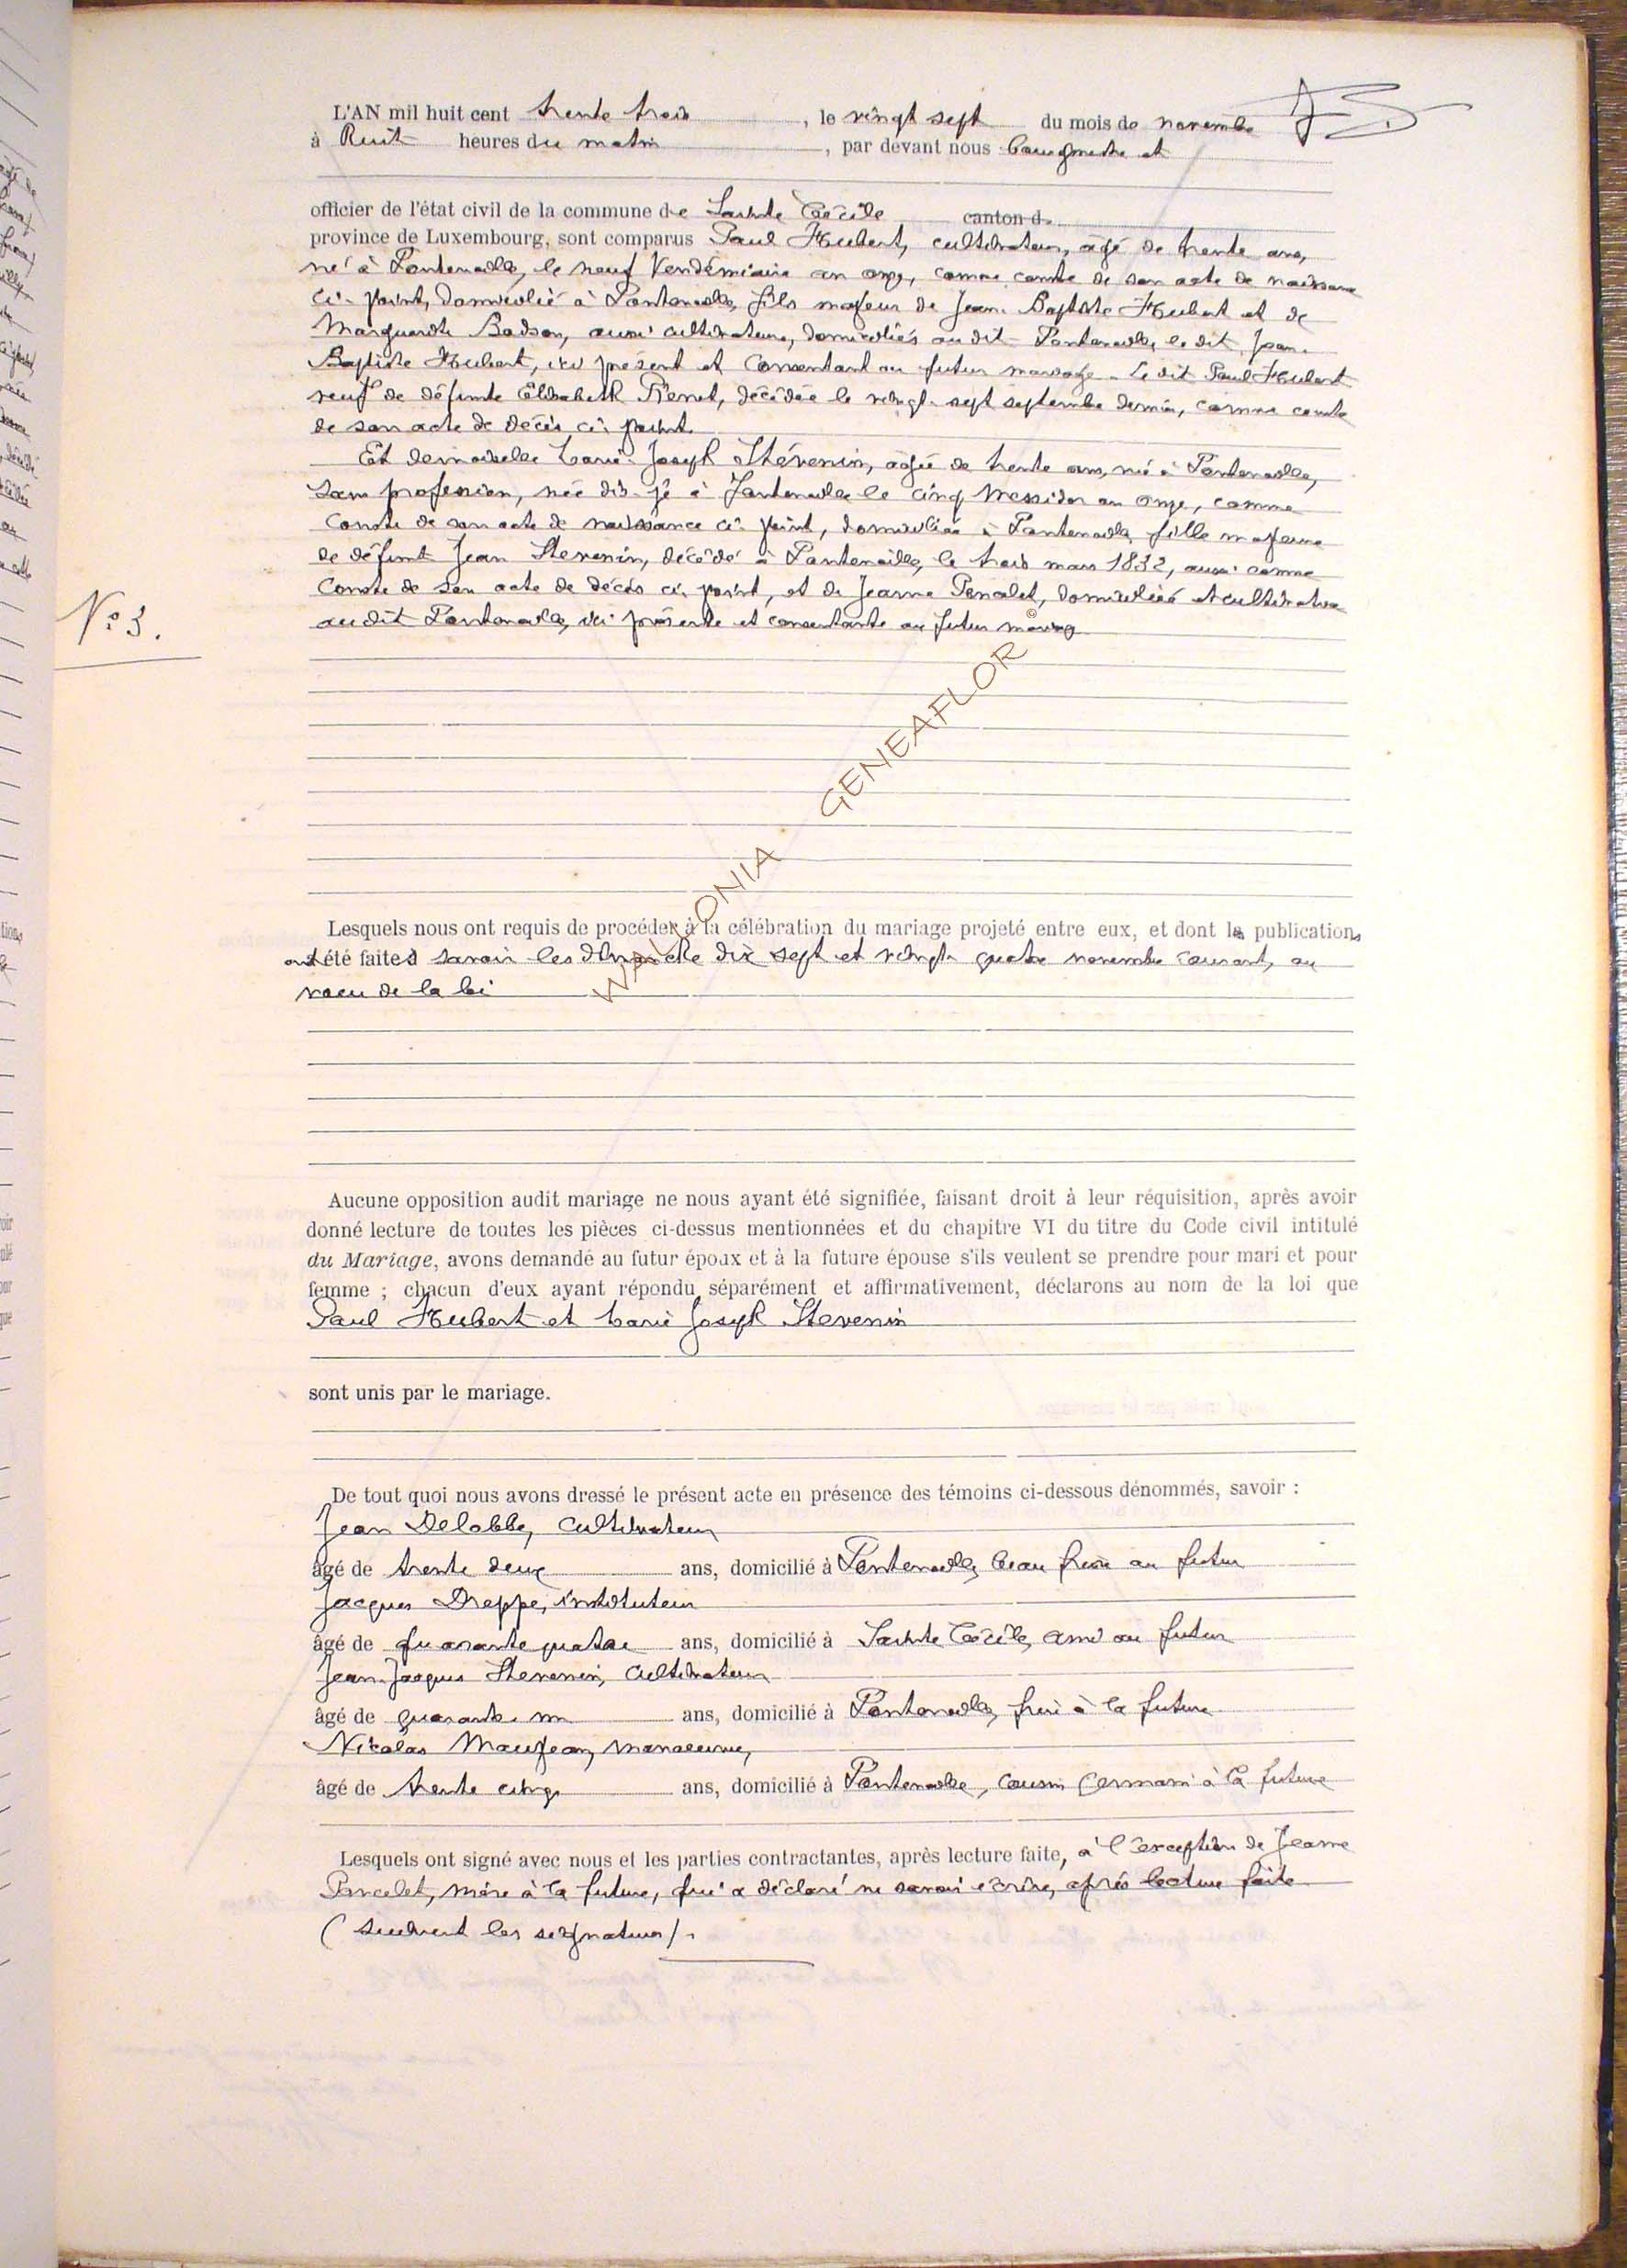 L'AN mil huit cent trente trois, le vingt sept du mois de novembre
à huit heures du matin, par devant nous bourgmestre et
officier de l'état civil de la commune de Sainte Cécile canton d
province de Luxembourg, sont comparus Paul Hubert, cultivateur, âgé de trente ans,
né à Fontenoille, le neuf Vendémiaire an onze, comme conste de son acte de naissance
ci-joint, domicilié à Fontenoille, fils majeur de Jean Baptiste Hubert et de
Marguerite Bodson, aussi cultivateurs, domiciliés au dit Fontenoille, le dit Jean
Baptiste Hubert, ici présent et consentant au futur mariage. Le dit Paul Hubert
veuf de défunte Elisabeth, décédée le vingt-sept septembre dernier, comme conste
de son acte de décès ci-joint.
Et demoiselle Marie-Joseph Stévenin, âgée de trente ans, née à Fontenoille,
sans profession, née dis-je à Fontenoille le cinq Messidor an onze, comme
conste de son acte de naissance ci-joint, domiciliée à Fontenoille, fille majeure
de défunt Jean Stevenin, décédé à Fontenoille, le trois mars 1832, aussi comme
conste de son acte de décès ci-joint, et de Jeanne Poncelet, domiciliée et cultivatrice
au dit Fontenoille, ici présente et consentante au futur mariage
N° 3.
©
WALLONIA GENEAFLOR
Lesquels nous ont requis de procéder à la célébration du mariage projeté entre eux, et dont les publications
ont été faites savoir les dimanche dix sept et vingt-quatre novembre courant, au
voeu de la loi
Aucune opposition audit mariage ne nous ayant été signifiée, faisant droit à leur réquisition, après avoir
donné lecture de toutes les pièces ci-dessus mentionnées et du chapitre VI du titre du Code civil intitulé
du Mariage, avons demandé au futur époux et à la future épouse s'ils veulent se prendre pour mari et pour
femme ; chacun d'eux ayant répondu séparément et affirmativement, déclarons au nom de la loi que
Paul Hubert et Marie Joseph Stevenin
sont unis par le mariage.
De tout quoi nous avons dressé le présent acte en présence des témoins ci-dessous dénommés, savoir :
Jean Delobbe, cultivateur
âgé de trente deux ans, domicilié à Fontenoille, beau frère au futur
Jacques Dreppe, instituteur
âgé de quarante quatre ans, domicilié à Sainte Cécile, ami au futur
Jean-Jacques Stevenin, cultivateur
âgé de quarante-un ans, domicilié à Fontenoille, frère à la future
Nicolas Maujean, manoeuvre,
âgé de trente cinq ans, domicilié à Fontenoille, cousin germain à la future
Lesquels ont signé avec nous et les parties contractantes, après lecture faite, à l'exception de Jeanne
Poncelet, mère à la future, qui a déclaré ne savoir écrire, après lecture faite
(suivent les signatures).